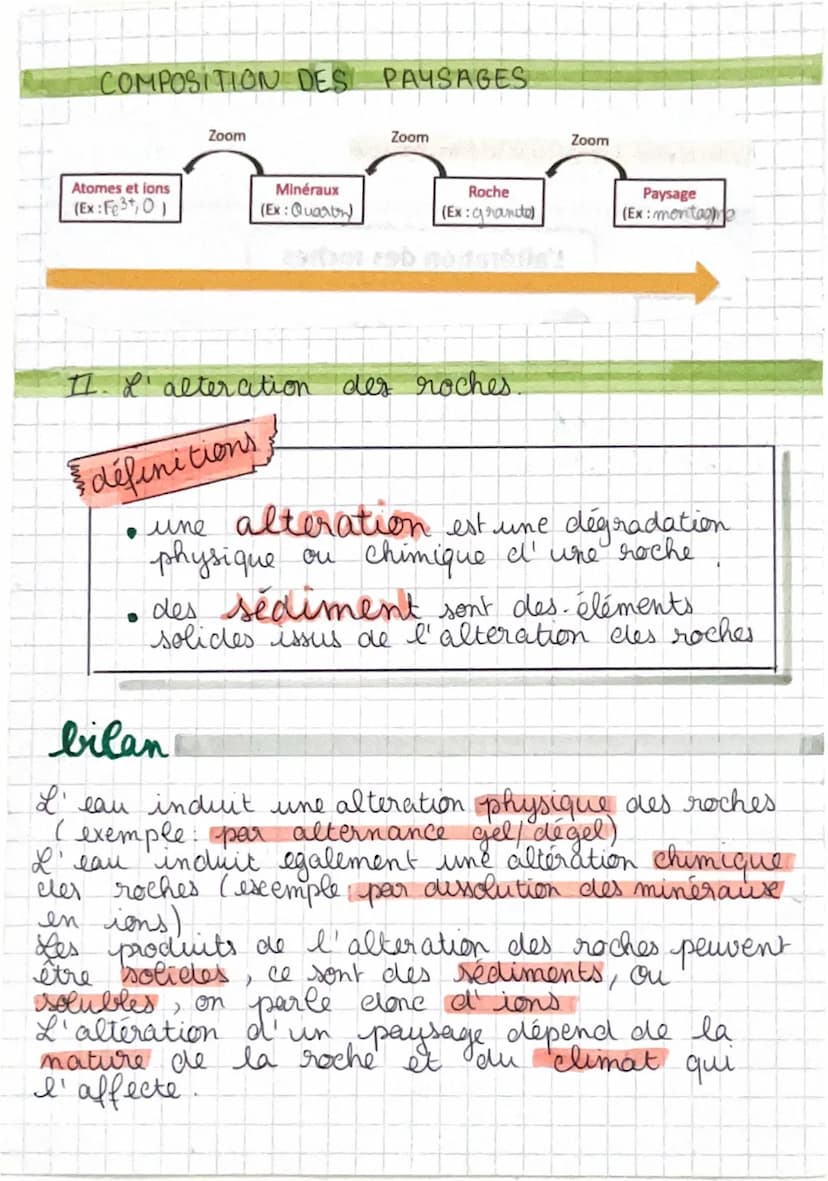 COMPOSITION DES PAYSAGES
Zoom Zoom Zoom
Atomes et ions Minéraux Roche Paysage
(Ex : Fe3+, O ) (Ex : Quartz) (Ex : granite) (Ex : montagne
L'altération des roches
II. L'alteration des roches.
définitions
• une alteration est une dégradation
physique ou chimique d'une roche.
• des sédiment sont des éléments
solides issus de l'alteration des roches
bilan
L'eau induit une alteration physique des roches
(exemple: par alternance gel/dégel)
L'eau induit egalement une altération chimique
des roches (exemple: par dissolution des minéraux
en ions)
Les produits de l'alteration des roches peuvent
être solides, ce sont des sédiments, ou
solubles, on parle donc d'ions
L'altération d'un paysage dépend de la
nature de la roche et du climat qui
l'affecte.